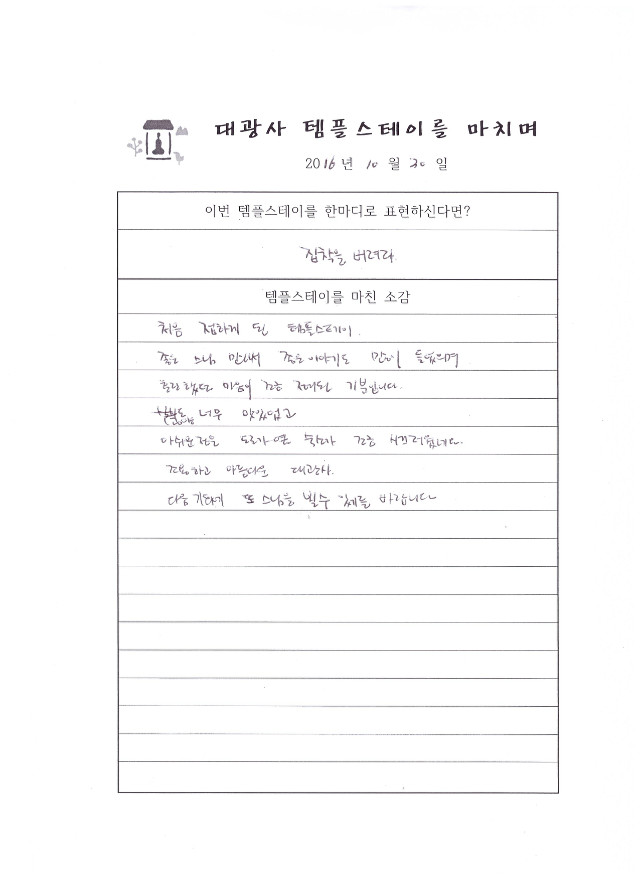 대광사 템플스테이를 마치며
2016년 10월 30일
이번 템플스테이를 한마디로 표현하신다면?
집착을 버려라.
템플스테이를 마친 소감
처음 접하게 된 템플스테이.
좋은 스님 만나서 좋은 이야기도 많이 들었으며
혼란했던 마음이 조금 정리된 기분입니다.
너무 맛있었고
아쉬운 점은 도로가 옆 조금 시끄러웠네요.
조용하고 아름다운 대광사.
다음 기회에 또 스님을 뵐수 있기를 바랍니다